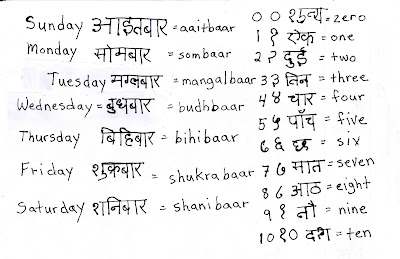 Sunday आइतबार =aaitbaar
Monday सोमबार = sombaar
Tuesday मग्लबार = mangalbaar
Wednesday = बुधबार = budhbaar
Thursday बिहिबार = bihibaar
Friday शुक्रबार = shukrabaar
Saturday शनिबार = shanibaar
0 ० शुन्य = zero
1 १ ऐक = one
2 २ दुई = two
3 ३ तिन = three
4 ४ चार = four
5 ५ पाँच = five
6 ६ छ = six
7 ७ सात = seven
8 ८ आठ = eight
9 ९ नौ = nine
10 १० दश = ten